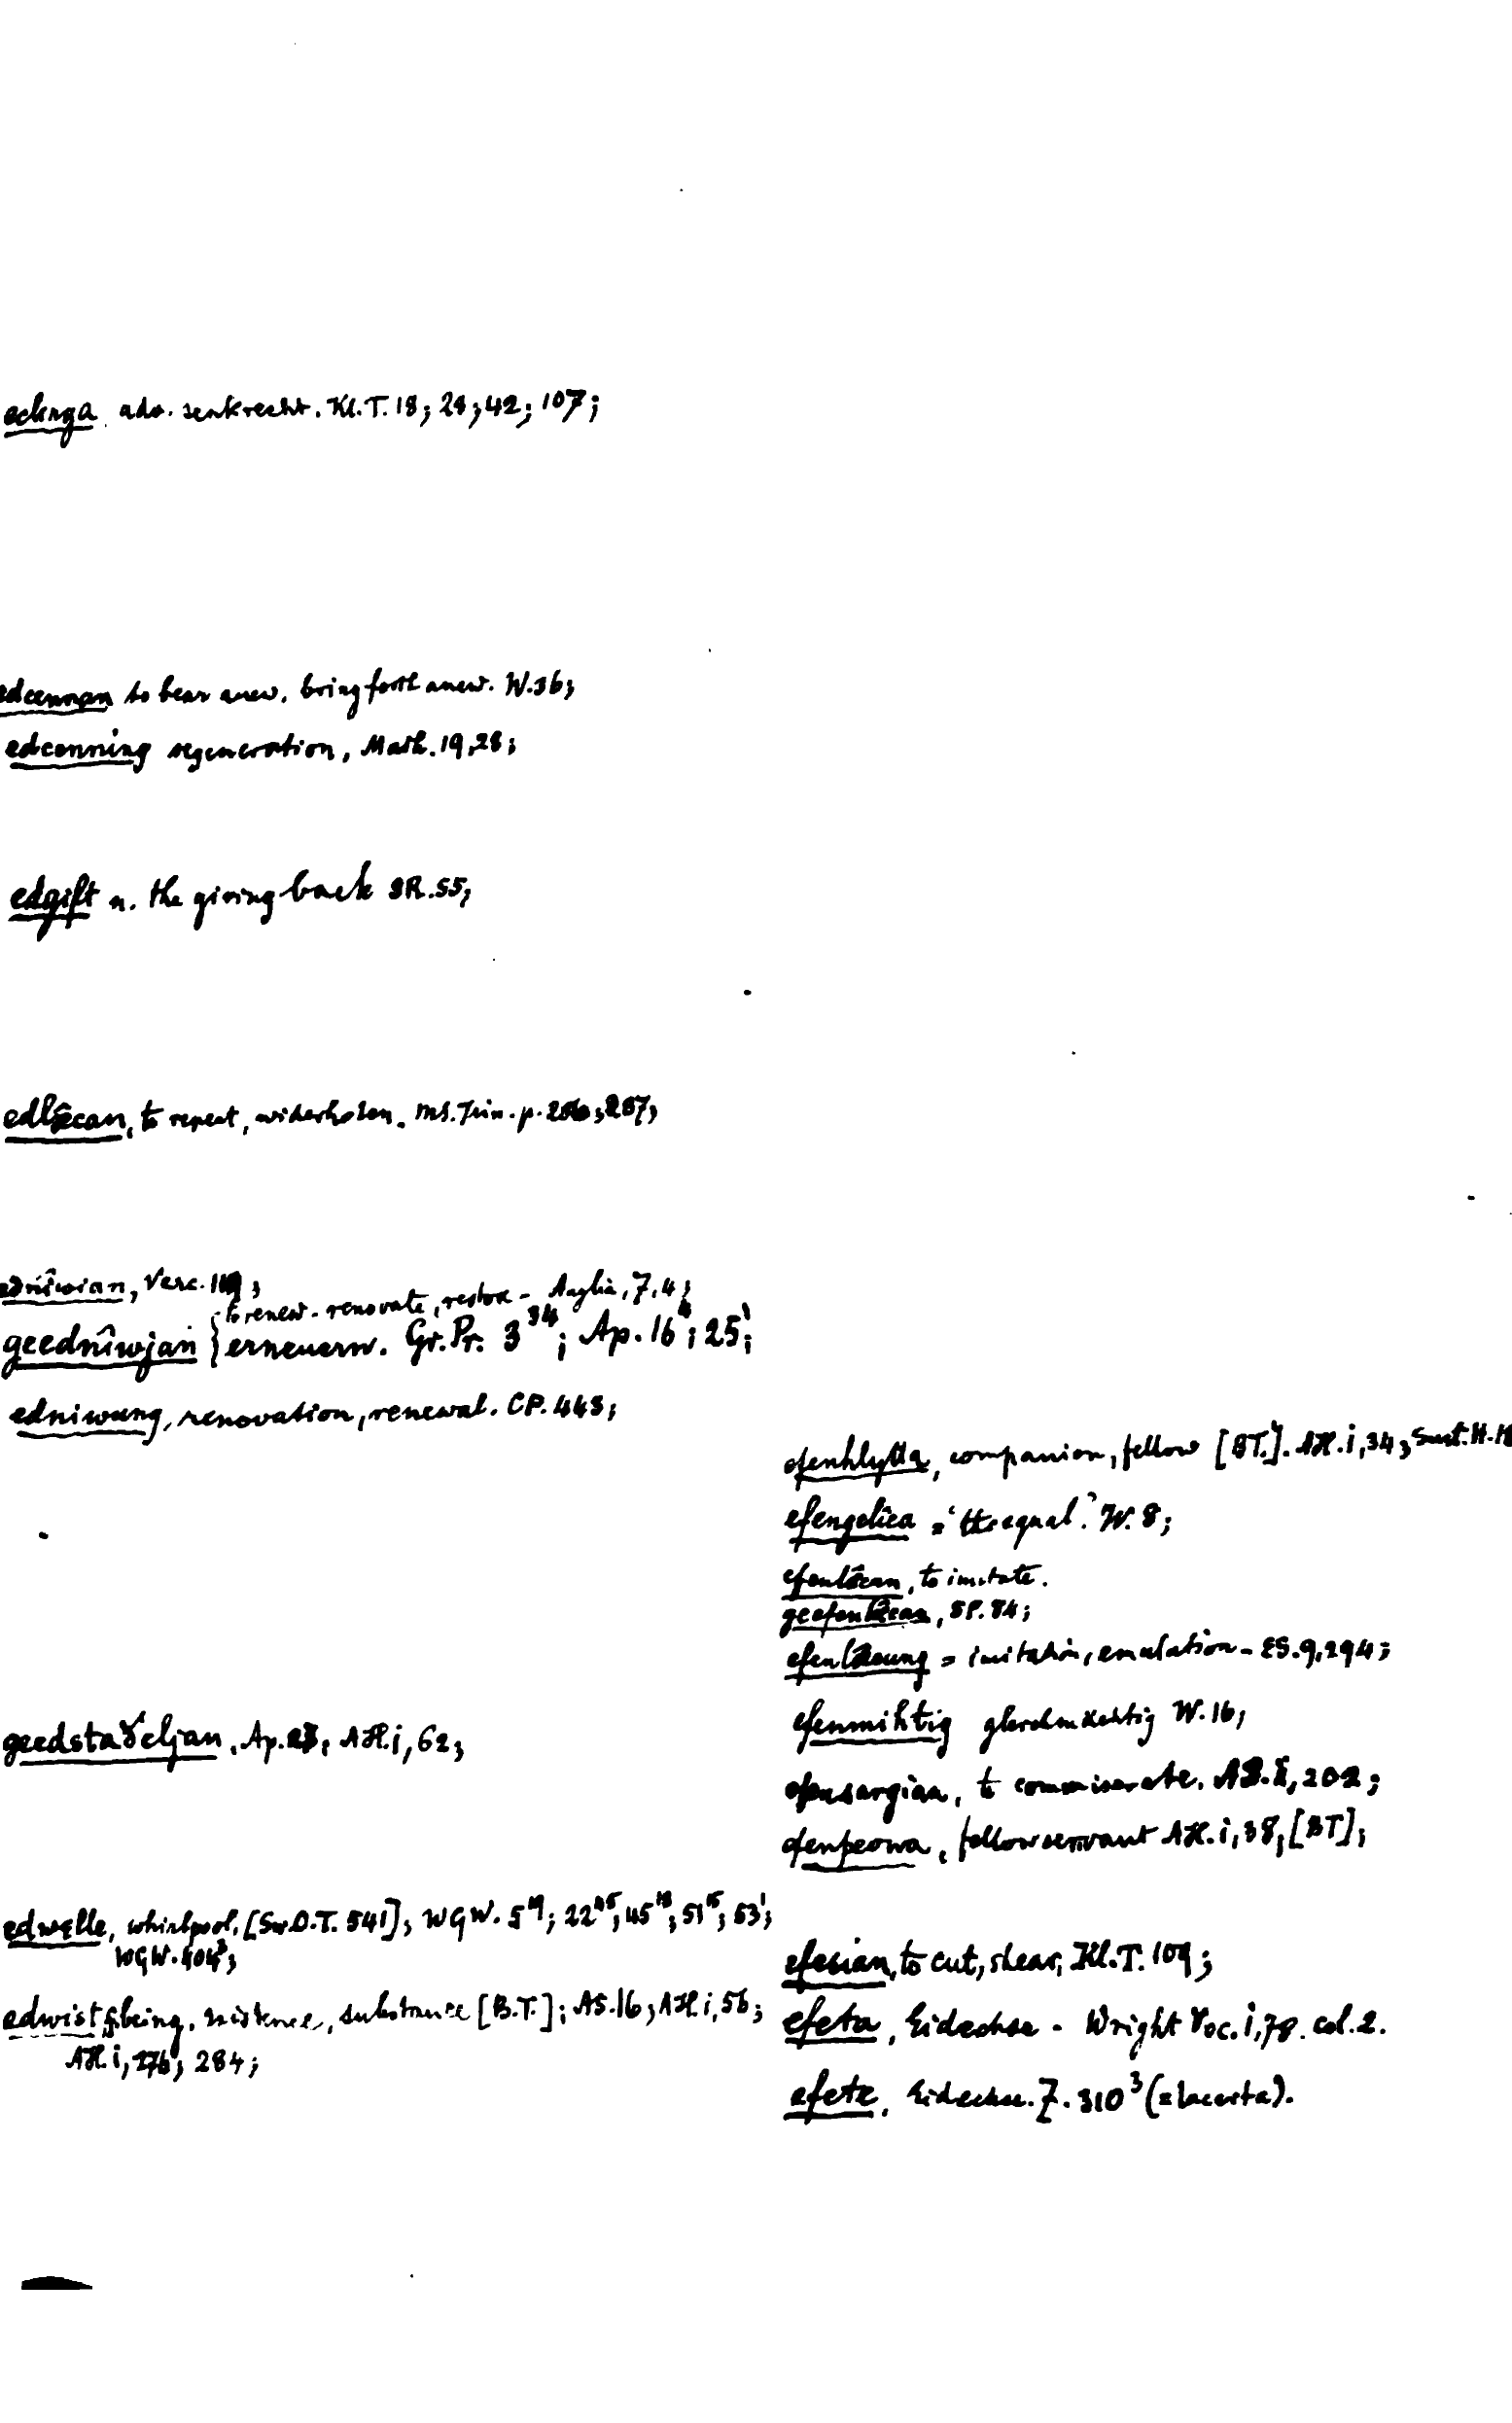 eclinga adv. senkrecht. Kl.T. 18; 28; 42; 107;
edcennan to bear anew. bring forth anew. W.36;
edcenning regeneration, Math. 19,28;
edgift n. the giving back SR.55;
edlǣcan, to repeat, widerholen. MS. Jun. p. 286; 287;
ednîwian, Verc.
to renew. renovate, restore - Anglia, 7,4;
geednîwjan { erneuern. Gr. Pr. 3³⁴; Ap. 16⁴; 25¹;
edniwung, renovation, renewal. CP. 443;
geedstaðeljan, Ap. AH. i, 62;
edwelle, whirlpool, [Sw.O.T. 541]; WGW. 5¹⁹; 22⁴⁵; 45¹⁸; 51¹⁵; 53¹;
WGW. 404³;
edwist f. being, existence, substance [B.T.]; AS.16; AH. i, 56;
AH. i, 276; 284;
efenhlytta, companion, fellow [BT.]. AH. i, 34;
efengelîca = 'the equal.' W. 8;
efenlǣcan, to imitate.
geefenlǣcan, SP. 84;
efenlǣcung = imitation, emulation - ES. 9, 294;
efenmihtig gleichmächtig W. 16;
efensargian, to commiserate. 202;
efenþeowa, fellowservant AH. i, 38, [BT];
efesian, to cut, shear, Kl.T. 109;
efeta, Eidechse - Wright Voc. i, 78. col. 2.
efete, Eidechse. Z. 310³ (= lacerta).